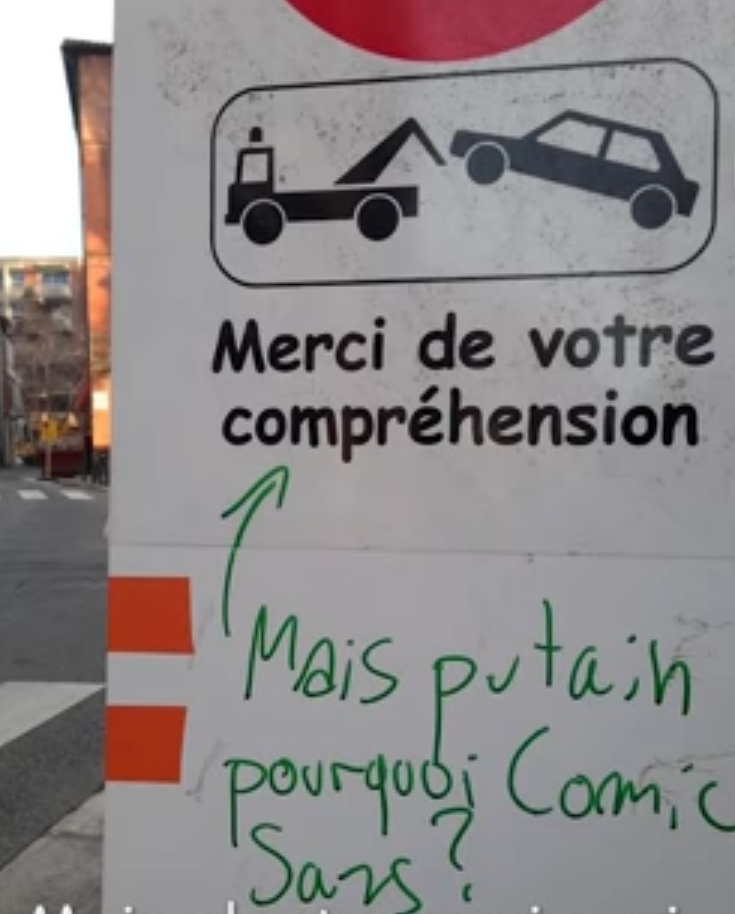 Merci de votre
compréhension
Mais putain
pourquoi Comic
Sans?